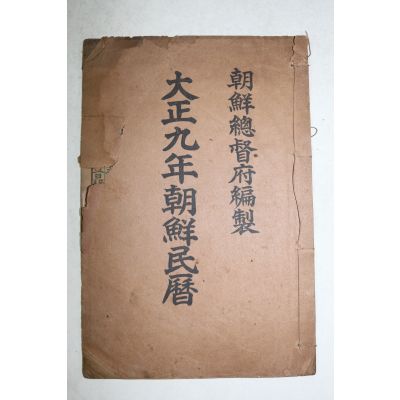 朝鮮總督府編製
大正九年朝鮮民曆